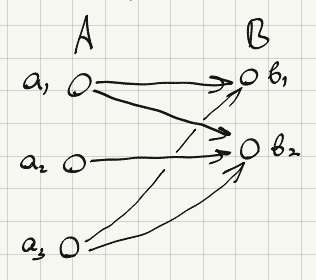 A B
a₁ b₁
a₂ b₂
a₃